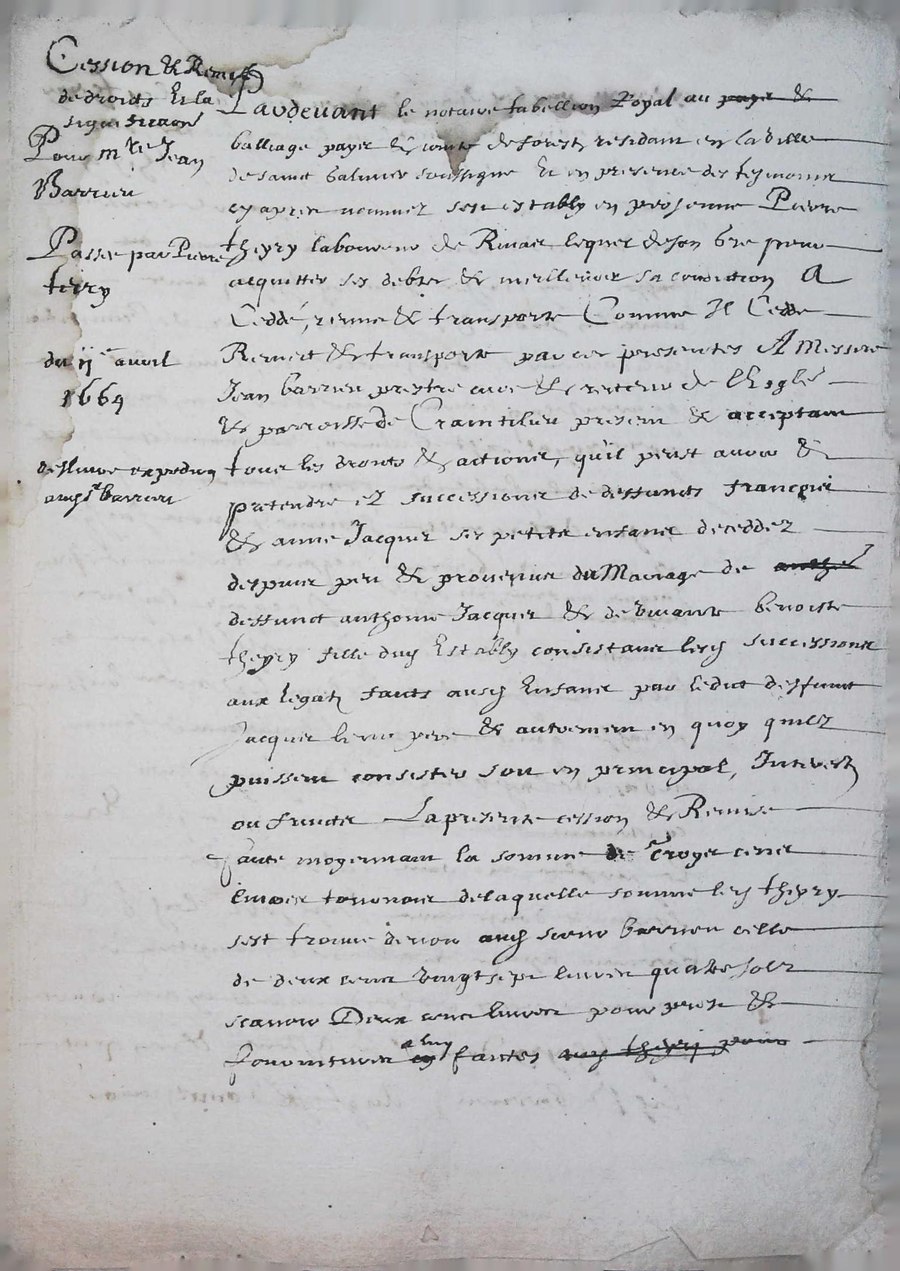 Cession & Remise
de droits Et la
signiffication
Pour mre Jean
Barrieu
Passée par Pierre
teyry
du ij avril
1664
delivre expedition
audt sr barrieu
Pardevant le notaire tabellion Royal au paye &
balliage payer & comté de forestz residant en la Ville
de sainct Galmier soubsigne Et en presence des tesmoins
cy apres nommez sest estably en personne Pierre
theyry laboureur de Rivaer lequel de son gre pour
acquitter ses debtes & meilleurer sa condition A
Ceddé, remis & transporte Comme Il Cedde
Remect & transporte par ces presentes A Messire
Jean barrieu prestre cure & recteur de lEsglé
& parroisse de Craintilieu present & acceptant
tous les droits & actions, quil peust avoir &
pretendre ez successions de deffuncts francois
& anne Jacquer ses petits enfans deceddez
despuis peu & provenus du Mariage de
deffunct anthoine Jacquer & de vivante benoiste
theyry fille dud Estably consistant lesd successions
aux legatz faicts ausd Enfans par ledict deffunct
Jacquer leur pere & autrement en quoy quilz
puissent consister soit en principal, Interestz
ou fruicts La presente cession & Remise
faicte moyennant la somme de Troyes cens
livres tournois de laquelle somme led theyry
sest trouve devoir aud sieur barrieu celle
de deux cens vingt sept livres quatre solz
scavoir Deux cens livres pour prest &
fournitures a luy faictes aud theyry pour